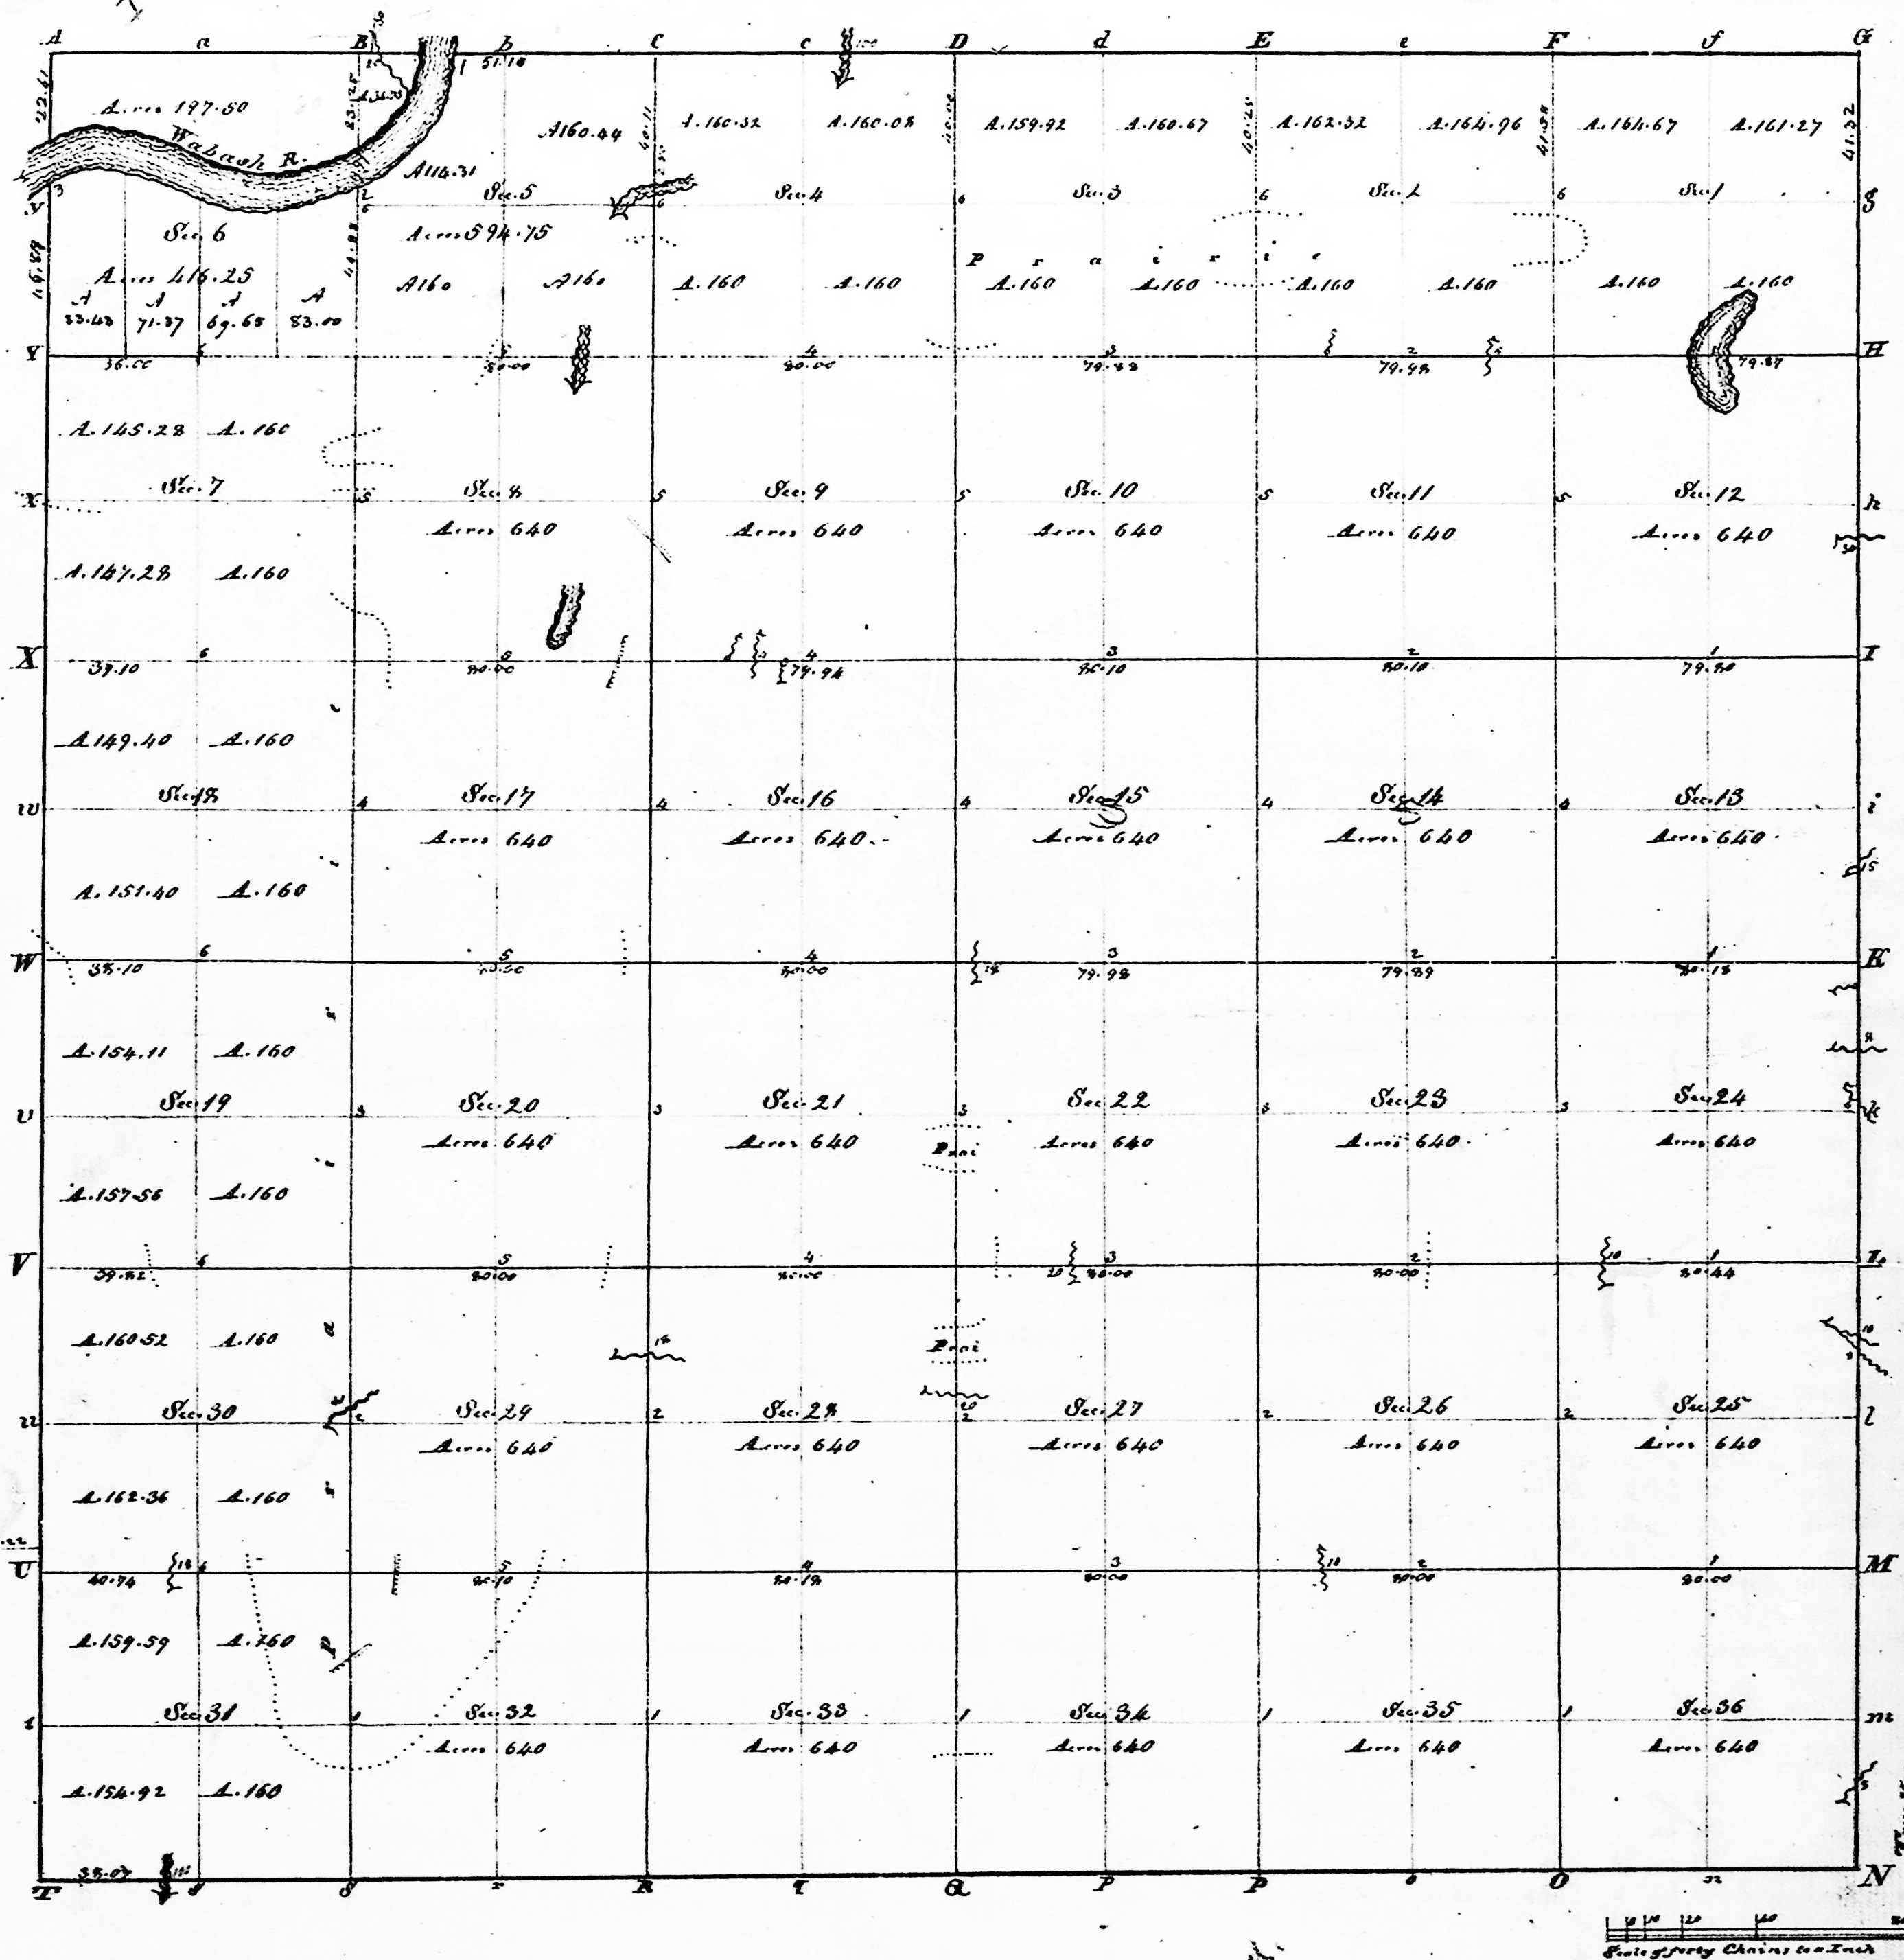 A a B b C c D d E e F f G
22.61 23.25 1 51.10 100
Acres 197.50 A160.44 A.160.32 A.160.08 A.159.92 A.160.67 A.162.32 A.164.96 A.164.67 A.161.27
40.11 40.25 41.58 41.32
Wabash R.
A114.31
3 2 6 Sec. 5 6 Sec. 4 6 Sec. 3 6 Sec. 2 6 Sec. 1 g
Sec. 6 Acres 594.75
Prairie
Acres 416.25 A160 A160 A.160 A.160 A.160 A.160 A.160 A.160 A.160 A.160
A A A A
33.43 71.37 69.65 83.00
Y 36.00 6 5 80.00 4 80.00 3 79.88 2 79.98 79.87 H
A.145.28 A.160
Sec. 7 5 Sec. 8 5 Sec. 9 5 Sec. 10 5 Sec. 11 5 Sec. 12 h
Acres 640 Acres 640 Acres 640 Acres 640 Acres 640
A.147.28 A.160
X 37.10 6 5 80.00 4 79.94 3 80.10 2 80.10 1 79.80 I
A.149.40 A.160
w Sec. 18 4 Sec. 17 4 Sec. 16 4 Sec. 15 4 Sec. 14 4 Sec. 13 i
Acres 640 Acres 640 Acres 640 Acres 640 Acres 640
15
A.151.40 A.160
W 38.10 6 5 80.00 4 80.00 18 3 79.98 2 79.89 1 80.18 K
A.154.11 A.160
U Sec. 19 3 Sec. 20 3 Sec. 21 3 Sec. 22 3 Sec. 23 3 Sec. 24 k
Acres 640 Acres 640 Prai Acres 640 Acres 640 Acres 640
A.157.56 A.160
V 39.82 6 5 80.00 4 80.00 20 3 80.00 2 80.00 10 1 80.44 L
A.160.52 A.160 18 Prai 10
u Sec. 30 2 Sec. 29 2 Sec. 28 20 2 Sec. 27 2 Sec. 26 2 Sec. 25 l
Acres 640 Acres 640 Acres 640 Acres 640 Acres 640
A.162.36 A.160
Prairie
U 40.74 6 5 80.10 4 80.18 3 80.00 10 2 80.00 1 80.00 M
A.159.59 A.160
t Sec. 31 1 Sec. 32 1 Sec. 33 1 Sec. 34 1 Sec. 35 1 Sec. 36 m
Acres 640 Acres 640 Acres 640 Acres 640 Acres 640
A.154.92 A.160
38.07
T S r R q Q p P o O n N
10 20 40
Scale of forty Chains to a Inch